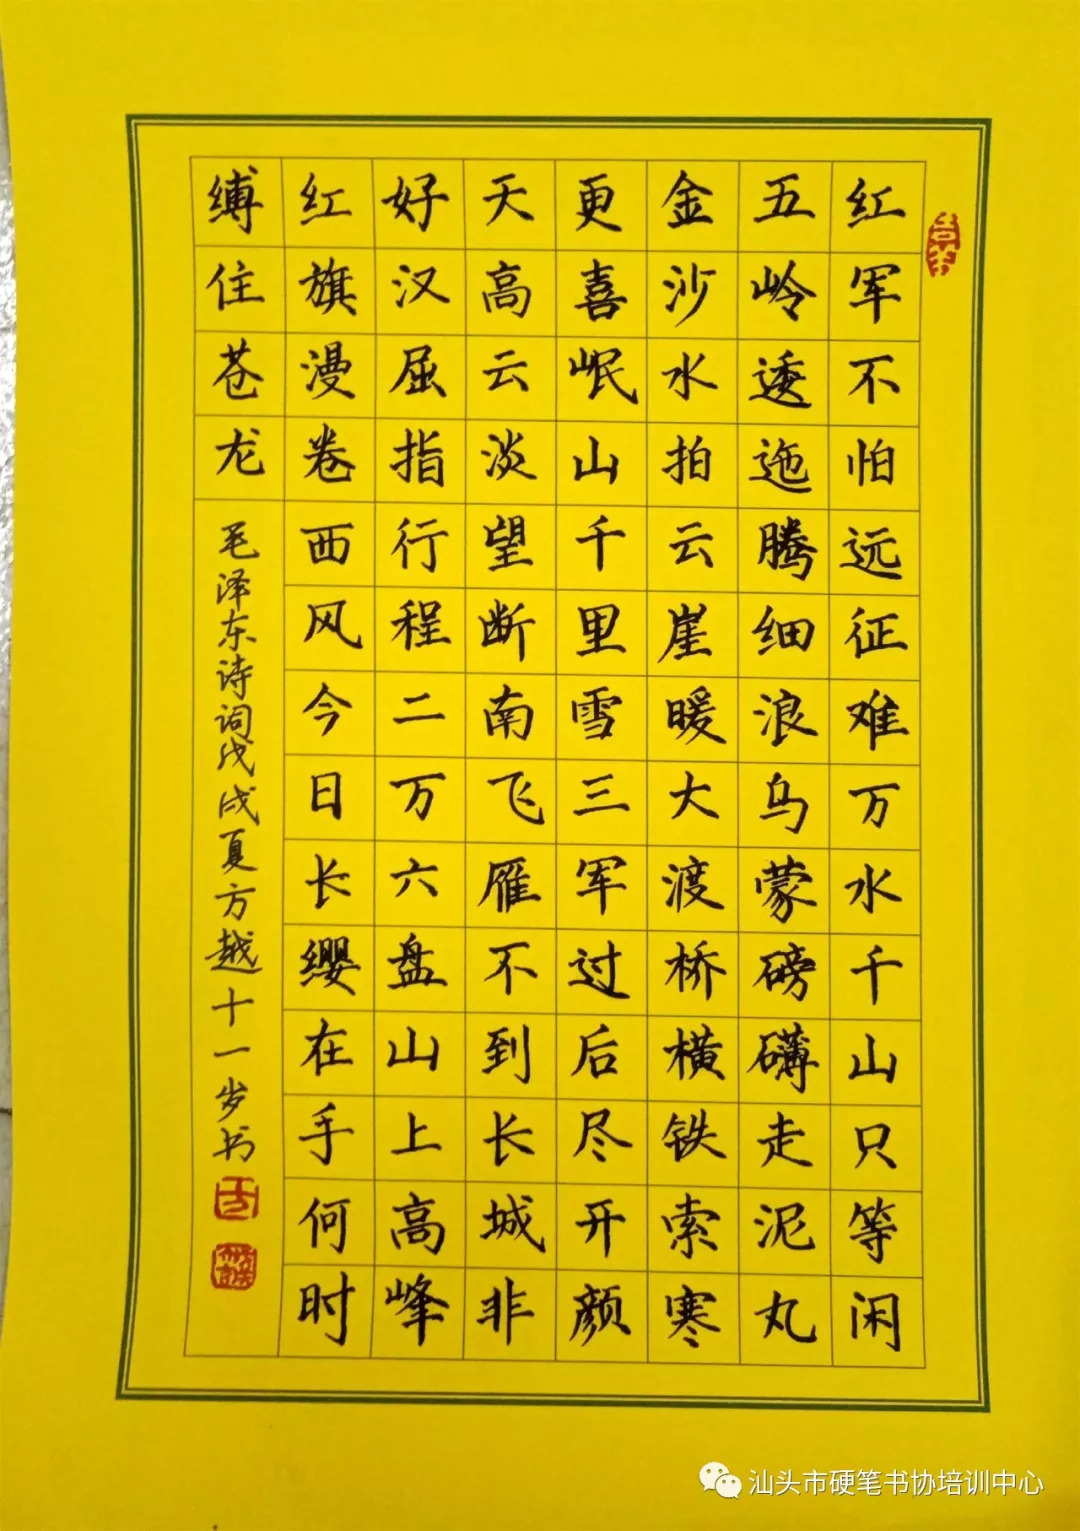 红军不怕远征难万水千山只等闲
五岭逶迤腾细浪乌蒙磅礴走泥丸
金沙水拍云崖暖大渡桥横铁索寒
更喜岷山千里雪三军过后尽开颜
天高云淡望断南飞雁不到长城非
好汉屈指行程二万六盘山上高峰
红旗漫卷西风今日长缨在手何时
缚住苍龙
毛泽东诗词戊戌夏方越十一岁书
汕头市硬笔书协培训中心